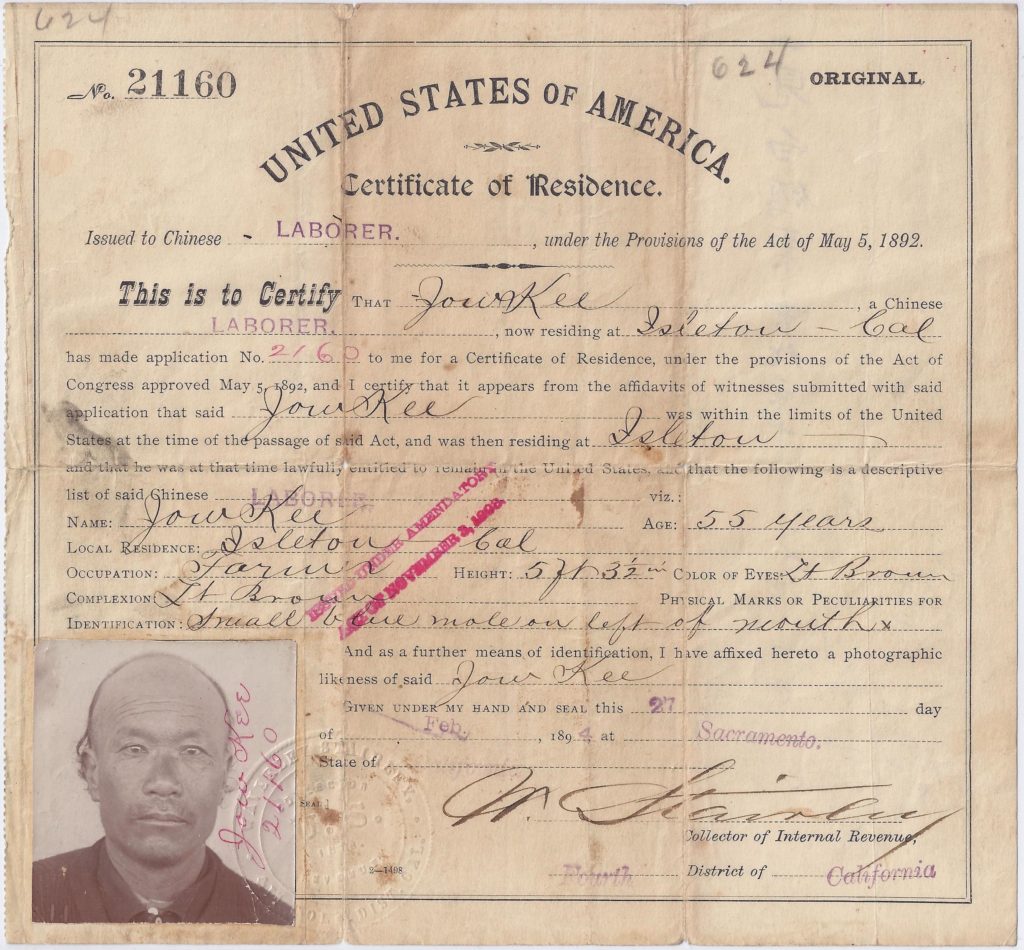 624
No. 21160
624
ORIGINAL.
UNITED STATES OF AMERICA.
Certificate of Residence.
Issued to Chinese - LABORER. , under the Provisions of the Act of May 5, 1892.
This is to Certify THAT Jow Kee , a Chinese
LABORER. , now residing at Isleton - Cal
has made application No. 2160 to me for a Certificate of Residence, under the provisions of the Act of
Congress approved May 5, 1892, and I certify that it appears from the affidavits of witnesses submitted with said
application that said Jow Kee was within the limits of the United
States at the time of the passage of said Act, and was then residing at Isleton
and that he was at that time lawfully entitled to remain in the United States, and that the following is a descriptive
list of said Chinese LABORER. viz.:
NAME: Jow Kee AGE: 55 years
LOCAL RESIDENCE: Isleton Cal
OCCUPATION: Farmer HEIGHT: 5 ft 3½ in COLOR OF EYES: Lt Brown
COMPLEXION: Lt Brown PHYSICAL MARKS OR PECULIARITIES FOR
IDENTIFICATION: Small blue mole on left of mouth x
ISSUED UNDER AMENDATORY
ACT OF NOVEMBER 3, 1893.
And as a further means of identification, I have affixed hereto a photographic
likeness of said Jow Kee
GIVEN UNDER MY HAND AND SEAL this 27 day
of Feb. , 1894 at Sacramento.
State of
Jow Kee
2160
SEAL
Collector of Internal Revenue,
2—1498
Fourth District of California